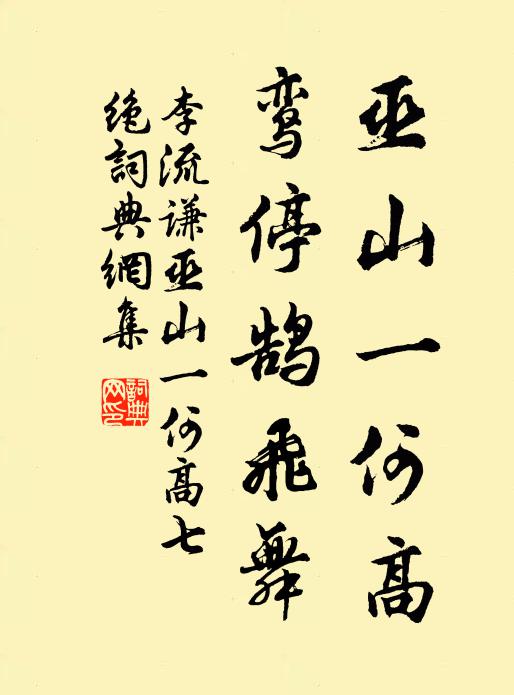 巫山一何高
鸾停鹄飛舞
李流谦巫山一何高七
绝詞典網集
詞典
网印